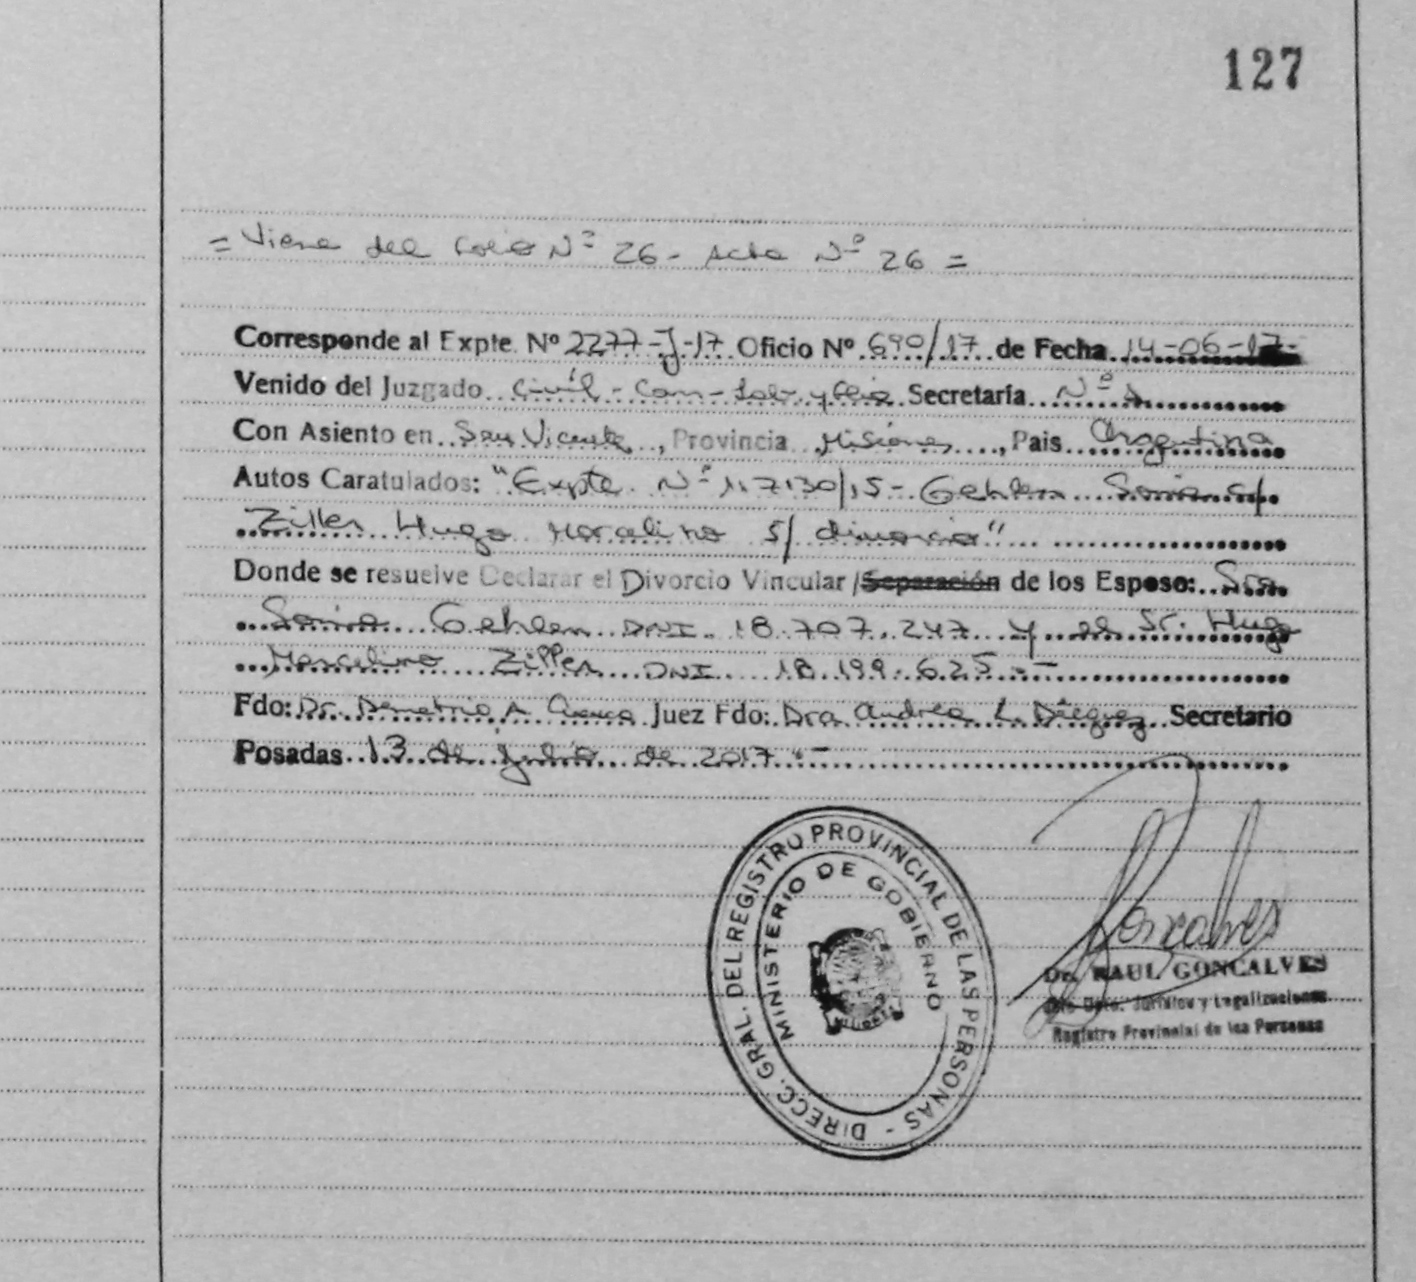 127
= Viene del folio Nº 26 - Acta Nº 26 =
Corresponde al Expte. Nº 2277-J-17 Oficio Nº 690/17 de Fecha 14-06-17-
Venido del Juzgado Civil - Com - Lab y Flia Secretaría Nº
Con Asiento en San Vicente, Provincia Misiones, Pais Argentina
Autos Caratulados: "Expte. Nº 117130/15 - Gehlen Sonia c/
Ziller Hugo Marcelino S/ divorcio"
Donde se resuelve Declarar el Divorcio Vincular/Separación de los Esposo: Sra
Sonia Gehlen DNI. 18.707.247 y el Sr. Hugo
Marcelino Ziller DNI 18.199.625.-
Fdo: Dr. Demetrio A. Juez Fdo: Dra Andrea L. Diéguez Secretario
Posadas 13 de julio de 2017.-
DIRECC. GRAL. DEL REGISTRO PROVINCIAL DE LAS PERSONAS -
MINISTERIO DE GOBIERNO
Goncalves
Dr. RAUL GONCALVES
Dpto. Jurídico y Legalizaciones
Registro Provincial de las Personas